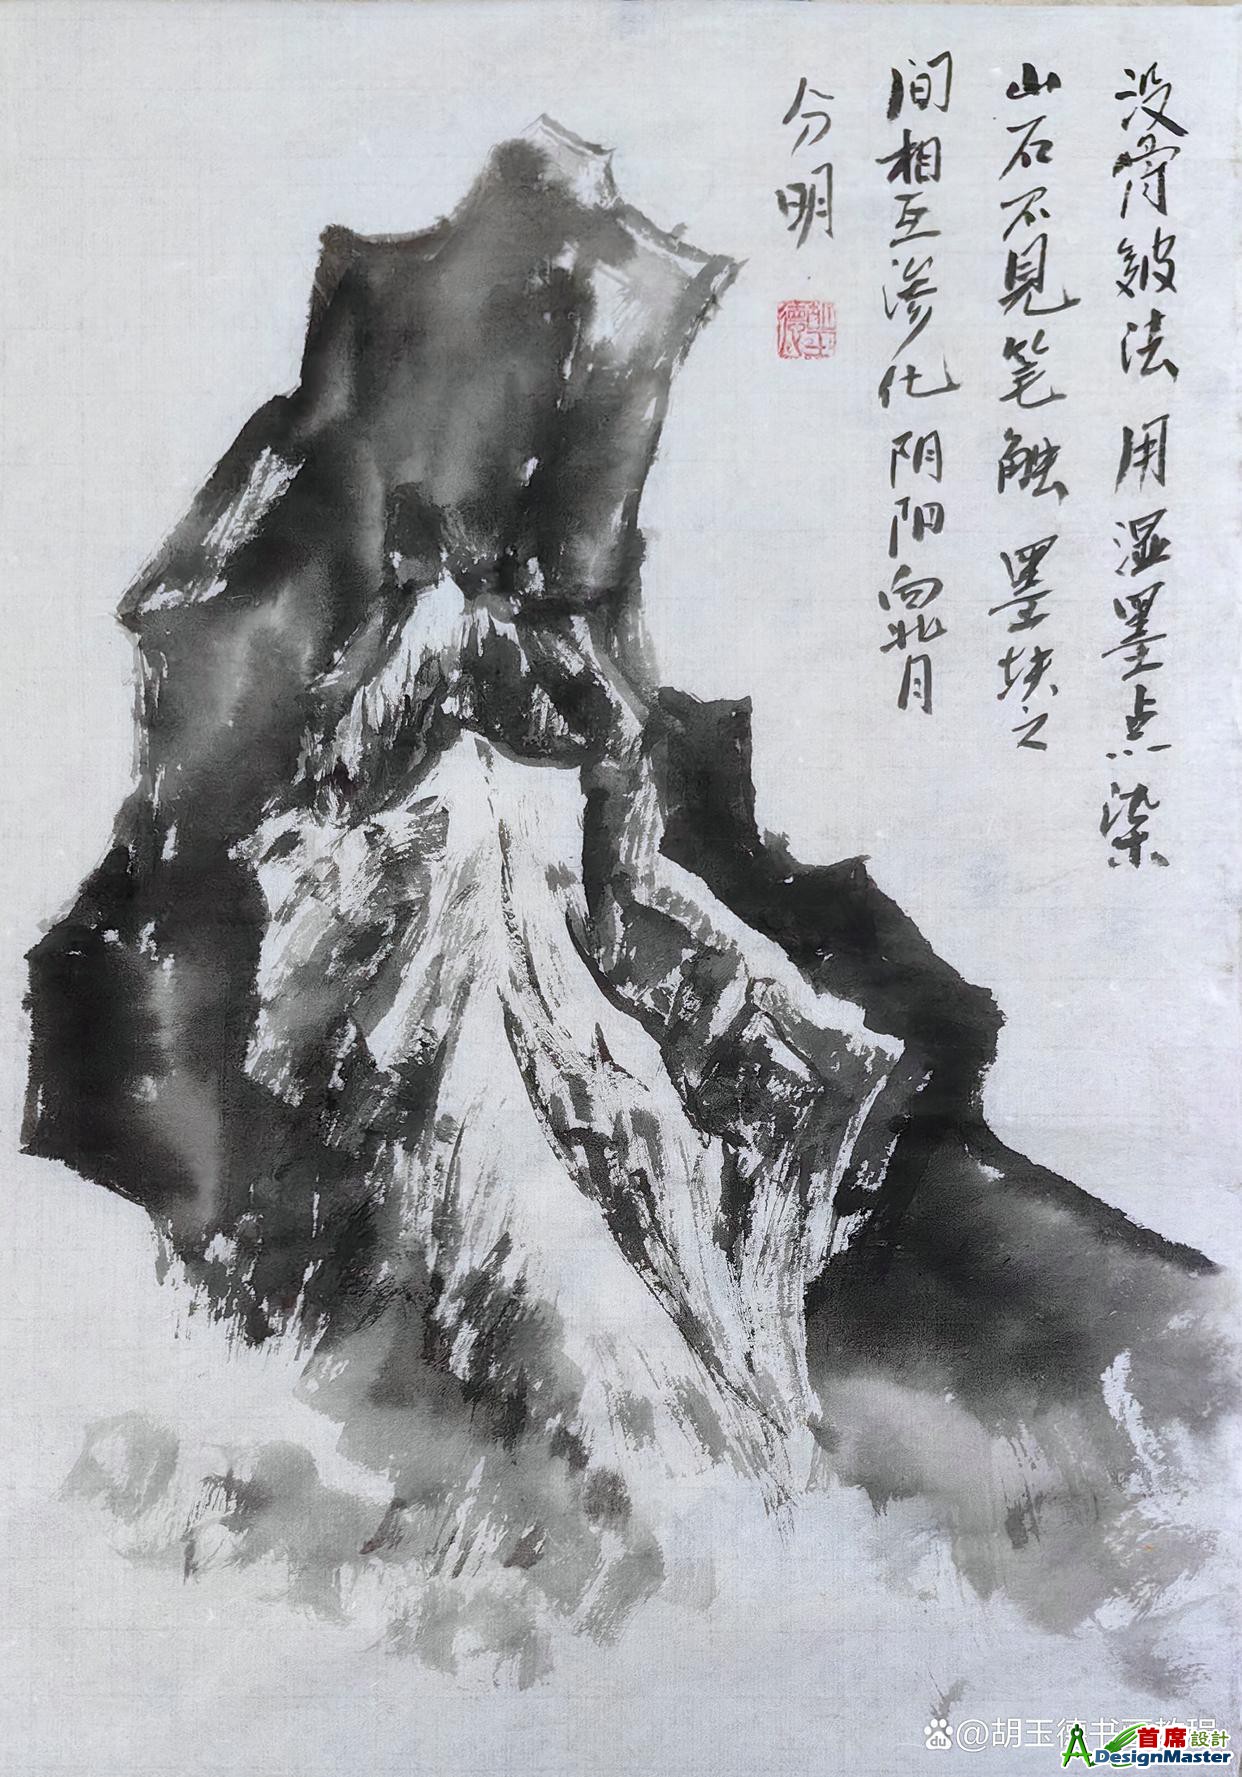 没骨皴法用湿墨点染
山石不见笔触墨块之
间相互渗化阴阳向背
分明
@胡玉德书画教程
首席設計
DesignMaster